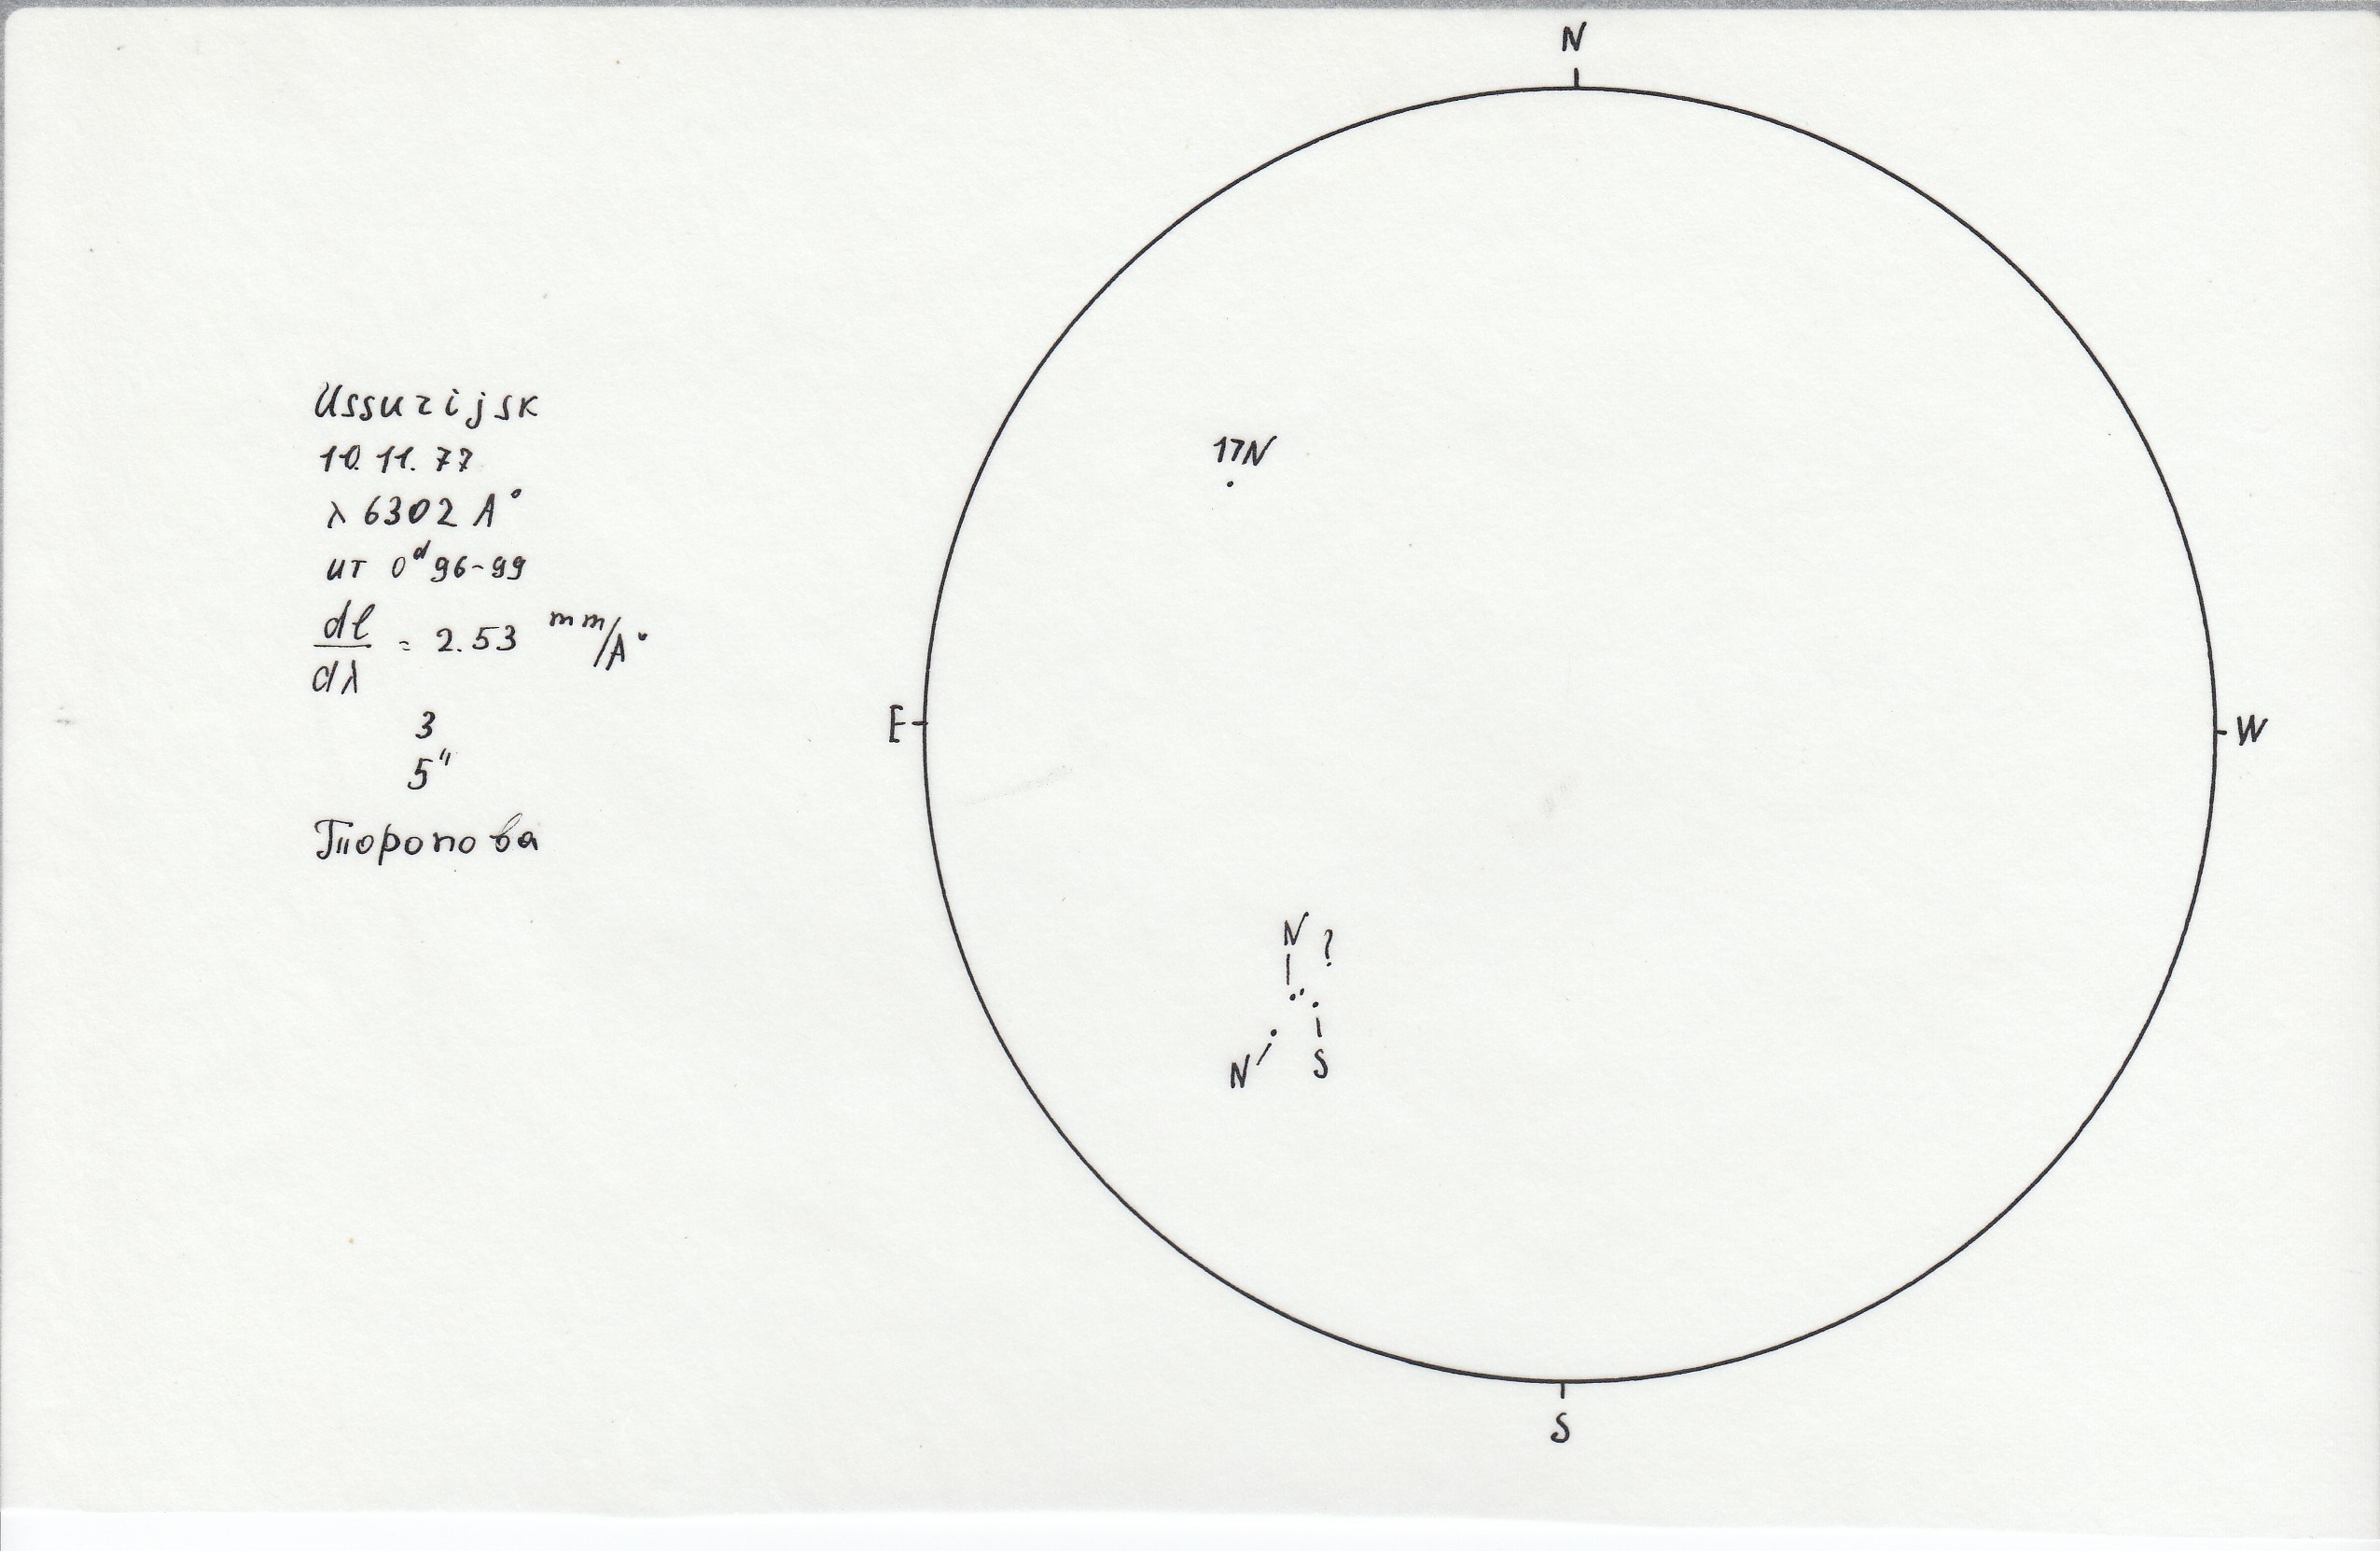 N
Ussurijsk
10.11.77
λ 6302 A°
UT 0ᵈ96-99
dl/dλ = 2.53 mm/A°
3
5"
Торопова
17N
E
W
N ?
N S
S